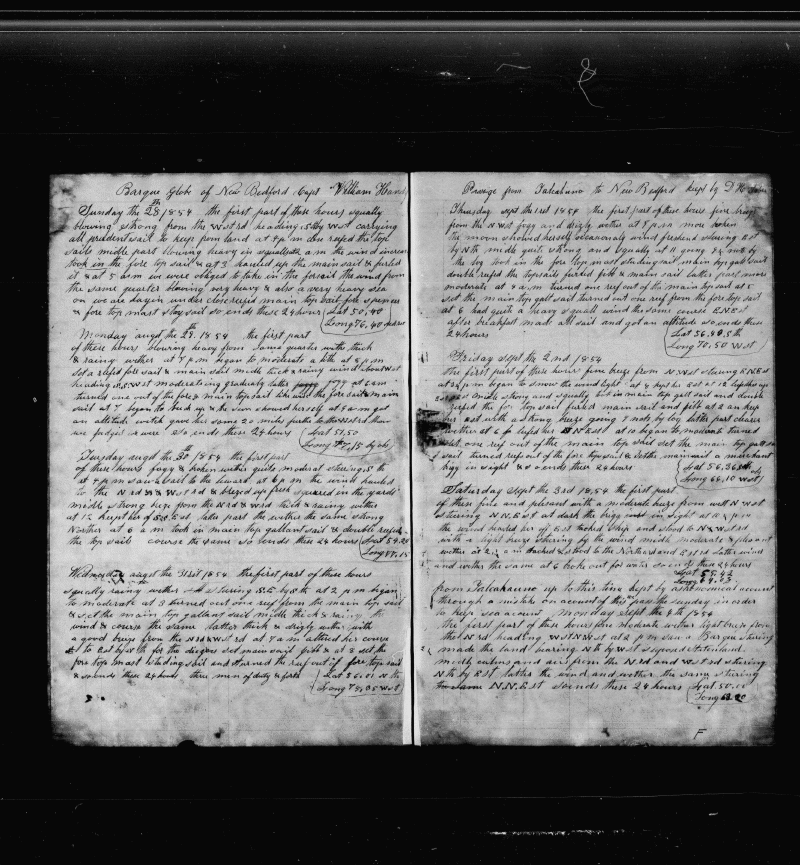 Barque Globe of New Bedford Capt William Hand
Sunday the 28th 1854 the first part of these hours squally
blowing strong from the Westrd heading S by West carrying
all prudent sail to keep from land at 4 pm dou refed the top
sails midle part blowing heavy in squalls a m the wind increas
took in the fore top sail & at 2 hauled up the main sail & furled
it & at 5 a m we were obliged to take in the forsail the wind from
the same quarter blowing very heavy & also a very heavy sea
on we are laying under close refed main top sail fore spencer
& fore top mast stay sail so ends these 24 hours Lat 50,40
Long 76,40
Monday augd the 29th 1854 the first part
of these hours blowing heavy from same quarter with thick
& rainy wether at 7 p m began to moderate a litle at 8 p m
set a refed fore sail & main sail midle thick & rainy wind about West
heading moderating gradualy latter at 6 am
turned one out of the fore & main top sail like wise the fore sail & main
sail at 7 began to brck up & the sun showed herself at 9 a m got
an altitude witch gave her some 20 miles furthe to the Nord than
we judged we were So ends these 24 hours Lat 51,50
Long 77,15
Tuesday augd the 30th 1854 the first part
of these hours fogg & broken wether quite moderat stering S th
at 4 p m saw a sail to the leward at 6 p m the wind hauled
to the Nrd & Westrd & brezed up fresh squared in the yards
midle strong breze from the Nrd & Wrd thick & rainy wether
at 12 keept her of S S E st latter part the wether the same strong
Wether at 6 a m took in main top gallant sail & double refed
the top sails course the same so ends these 24 hours Lat 54.28
Long 77,15
Wednesday augst the 31st 1854 the first part of these hours
squally rainy wether stering S E by S th at 2 p m began
to moderate at 3 turned out one reef from the main top sail
& set the main top gallant sail midle thick & rainy the
wind & course the same latter thick & drizly wether with
a good breze from the Nrd & West rd at 7 a m altered her course
to East by N th for the diegoes set main sail & gibb & at 8 set the
fore top mast studing sail and turned the reef out of fore top sail
& so ends these 24 hours three men of duty & forth Lat 56.01 S th
Long 75,35 West
Passage from Talcahuano to New Bedford Kept by D H
Thursday sept the 1st 1854 the first part of these hours fine breze
from the N West fogg and drizly wether at 7 p m more broken
the moon showed herself occasionaly wind freshend stering East
by N th midle quite strong and squally at 11 going 9 knots by
the log took in the fore top mast studing sail main top gall sail
double refed the topsails furled gibb & main sail latter part more
moderate at 4 a m turned one reef out of the main top sail at 5
set the main top gall sail turned out one reef from the fore top sail
at 6 had quite a heavy squall wind the same course E N E st
after breakfast made all sail and got an altitude so ends these
24 hours Lat 56,40 S th
Long 70,50 West
Friday sept the 2nd 1854
the first part of these hours fine breze from N West stering E N E st
at 2 p m began to snow the wind light at 4 kept her East at 12
midle strong and squally took in main top gall sail and double
refed the fore top sail furled main sail and gibb at 2 am keep
her east with a strong breze going 9 nots by log latter part clearer
wether at 6 keept her N E st at 10 began to moderate turned
out one reef out of the main top sail set the main top gallt
sail turned reef out of the fore top sail & set the main sail a merchant
brigg in sight & so ends these 24 hours Lat 56,36 S th
Long 66,10 West
Saturday sept the 3rd 1854 the first part
of these fine and plesant with a moderate breze from west N West
stering N N E st at dark the brigg out in sight at 8 p m
the wind hauled her of East tacked ship and stood to N & Westrd
with a light breze stering by the wind midle moderate & plesant
wether at 2 a m tacked & stood to the Northerd and Estrd latter wind
and wether the same at 6 broke out for water so ends these 24 hours
Lat 55.42
Long 64.03
from Talcahauno up to this time kept by astronomical account
through a mistake on account of this I pass the sunday in order
to keep sea account Monday sept the 4th 1854
the first part of these hours fine moderate wether light breze from
the N rd heading West N West at 2 p m saw a Barque stering
made the land bearing N th by West suposed Statenland
midle calms and airs from the N rd and West rd stering
N th by East latter the wind and wether the same stering
the same N. N. E st so ends these 24 hours Lat 50.10
Long 63.20
F